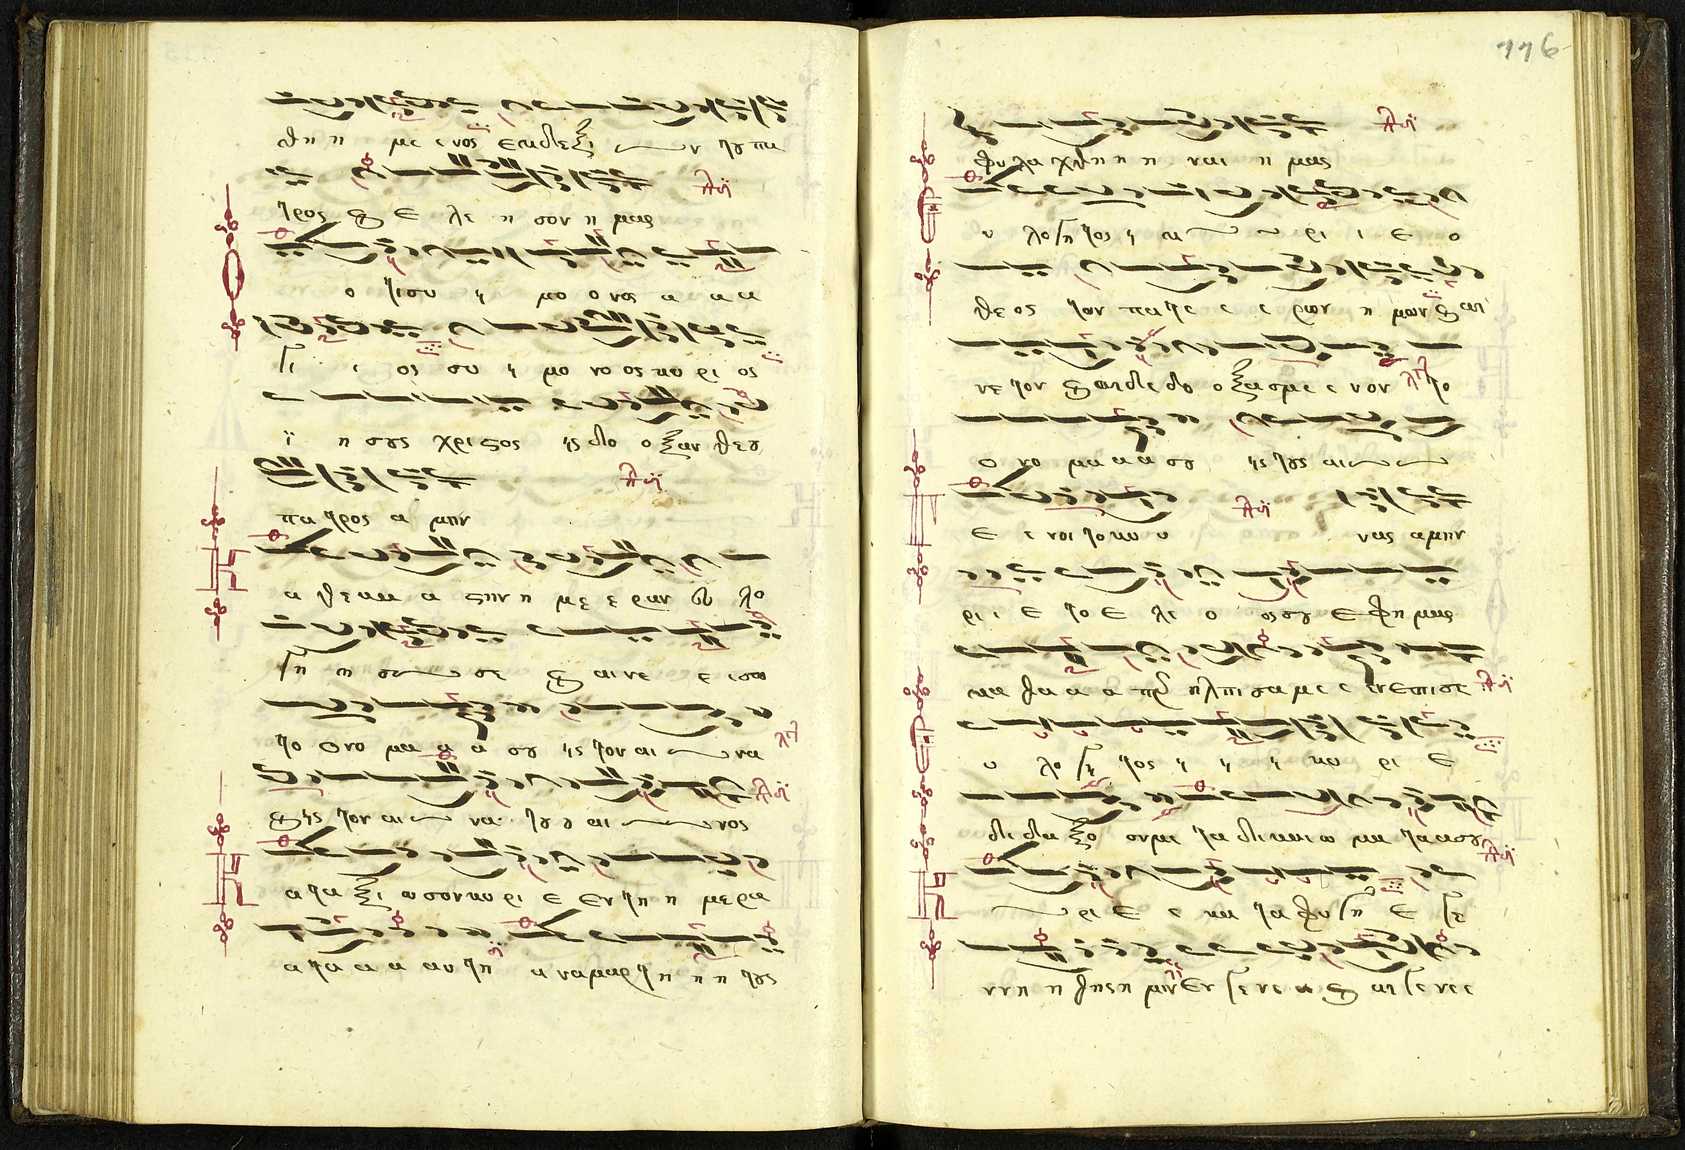 θη η με ε νος εν δε ξι ν του πα
τρος ϗ ε λε η σον η μας
ο τι συ ει μο ο νος α α α
γι ι ος συ ει μο νο ος κυ ρι ος
ϊ η σους χριστος εις δο ο ξαν θεου
πα τρος α μην
α θ εκα α στην η με ε ραν ευ λο
γη η σω σε ϗ αι νε ε σω
το ο νο μα α α σου εις τον αι να
ϗ εις τον αι να του ου αι νος
α τα ξι ω σον κυ ρι ε εν τη η με ρα
α τα α α αυ τη α ναμαρ τη η η τους
116
φυ λα χθη η η ναι η μας
υ λογη τος ει κυ ρι ι ε ο
θε ος των πα τε ε ε ρων η μων ϗ αι
νε τον ϗ αι δε δο ο ξα σμε ε νον το
ο νο μα α α σου εις τους αι
ε ε νοι το κυ υ νας α μην
ρι ι ε το ε λε ο ος σου ε φη μας
κα θα α α περ ηλπι σα με ε εν επι σε
υ λο γη τος ει ει ει κυ ρι ε
δι δα ξο ον με τα δι και ω μα τα α σου
ρι ε ε κα τα φυ γη ε γε
νν η η θης η μιν εν γε νε α ϗ αι γε νε ε